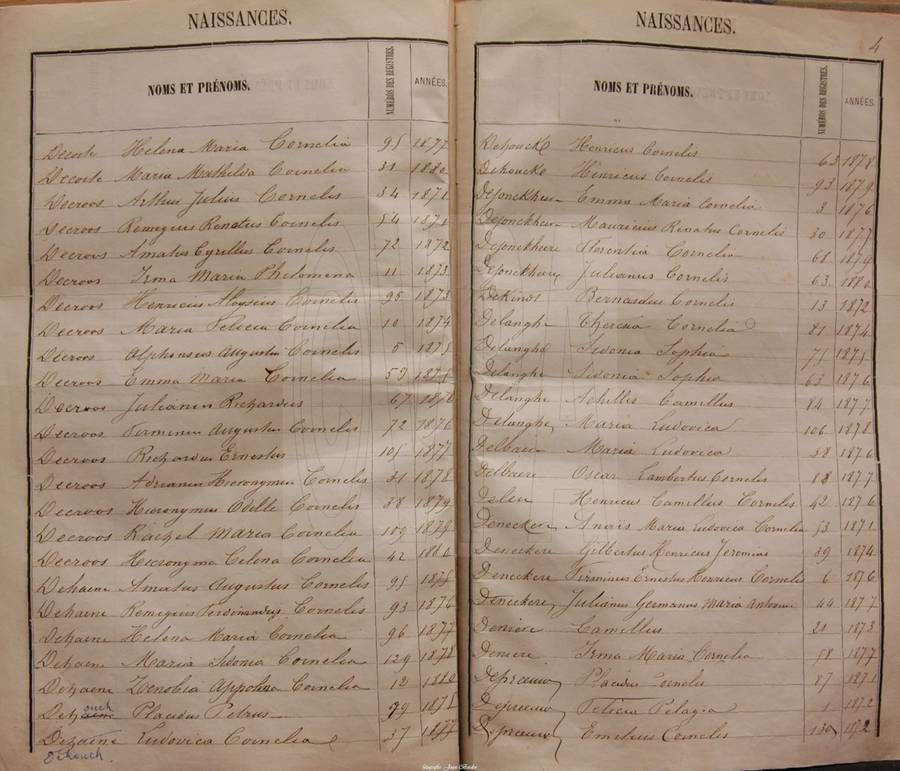 NAISSANCES.
NOMS ET PRÉNOMS. NUMÉROS DES REGISTRES. ANNÉES.
Decorte Helena Maria Cornelia 95 1877
Decorte Maria Mathilda Cornelia 31 1880
Decroos Arthur Julius Cornelis 34 1871
Decroos Remigius Renatus Cornelis 54 1871
Decroos Amatus Cyrillus Cornelis 72 1872
Decroos Irma Maria Philomena 11 1873
Decroos Henricus Aloysius Cornelis 95 1873
Decroos Maria Felicia Cornelia 10 1874
Decroos Alphonsus Augustus Cornelis 5 1875
Decroos Emma Maria Cornelia 59 1875
Decroos Julianus Richardus 67 1876
Decroos Firminus Augustus Cornelis 72 1876
Decroos Richardus Ernestus 105 1877
Decroos Adrianus Hieronymus Cornelis 31 1878
Decroos Hieronymus Odille Cornelis 38 1879
Decroos Rachel Maria Cornelia 109 1879
Decroos Hieronyma Celona Cornelia 42 1880
Dehaene Amatus Augustus Cornelis 95 1875
Dehaene Remigius Ferdinandus Cornelis 93 1876
Dehaene Helena Maria Cornelia 96 1877
Dehaene Maria Sidonia Cornelia 129 1878
Dehaene Zenobia Appolina Cornelia 12 1880
ouck
Dehaene Placidus Petrus 79 1875
Dehaene Ludovica Cornelia 37 1877
Dehouck.
NAISSANCES.
4
NOMS ET PRÉNOMS. NUMÉROS DES REGISTRES. ANNÉES.
Dehoucke Henricus Cornelis 63 1878
Dehoucke Henricus Cornelis 93 1879
Dejonckheere Emma Maria Cornelia 3 1876
Dejonckheere Mauricius Renatus Cornelis 30 1877
Dejonckheere Florentia Cornelia 68 1879
Dejonckheere Julianus Cornelis 63 1880
Dekindt Bernardus Cornelis 13 1872
Delanghe Theresia Cornelia 81 1874
Delanghe Sidonia Sophia 75 1875
Delanghe Sidonia Sophia 63 1876
Delanghe Achillis Camillus 84 1877
Delanghe Maria Ludovica 106 1878
Delbaere Maria Ludovica 58 1876
Delbaere Oscar Lambertus Cornelis 88 1877
Deleu Henricus Camillus Cornelis 42 1876
Deneckere Anais Maria Ludovica Cornelia 53 1871
Deneckere Gilbertus Henricus Jeremias 39 1874
Deneckere Firminus Ernestus Henricus Cornelis 6 1876
Deneckere Julianus Germanus Maria Antonius 44 1877
Deniere Camillus 21 1873
Deniere Irma Maria Cornelia 58 1877
Depreeuw Placidus Cornelis 87 1871
Depreeuw Felicia Pelagia 1 1872
Depreeuw Emilius Cornelis 130 1872